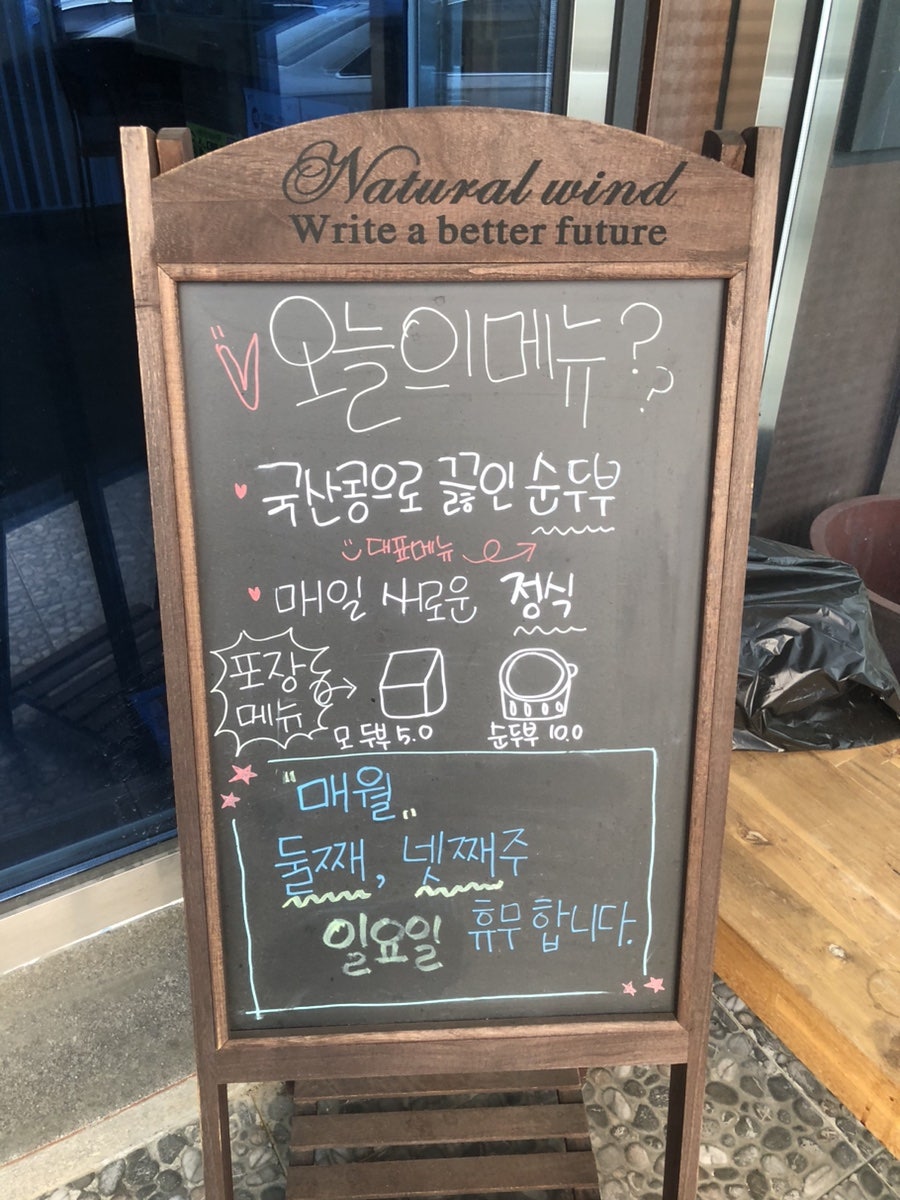 Natural wind
Write a better future
오늘의메뉴??
국산콩으로 끓인 순두부
대표메뉴
매일 새로운 정식
포장
메뉴
모두부 5.0 순두부 10.0
"매월"
둘째, 넷째주
일요일 휴무합니다.